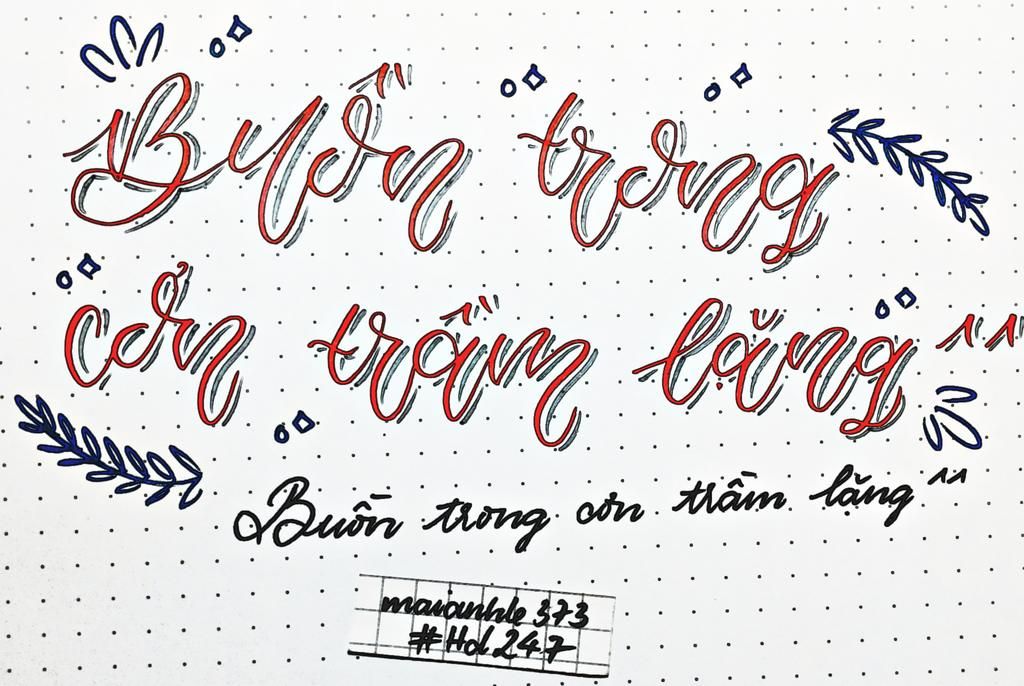 Buồn trong
cơn trầm lặng ^^
Buồn trong cơn trầm lặng ^^
maianhle373
#Hd247